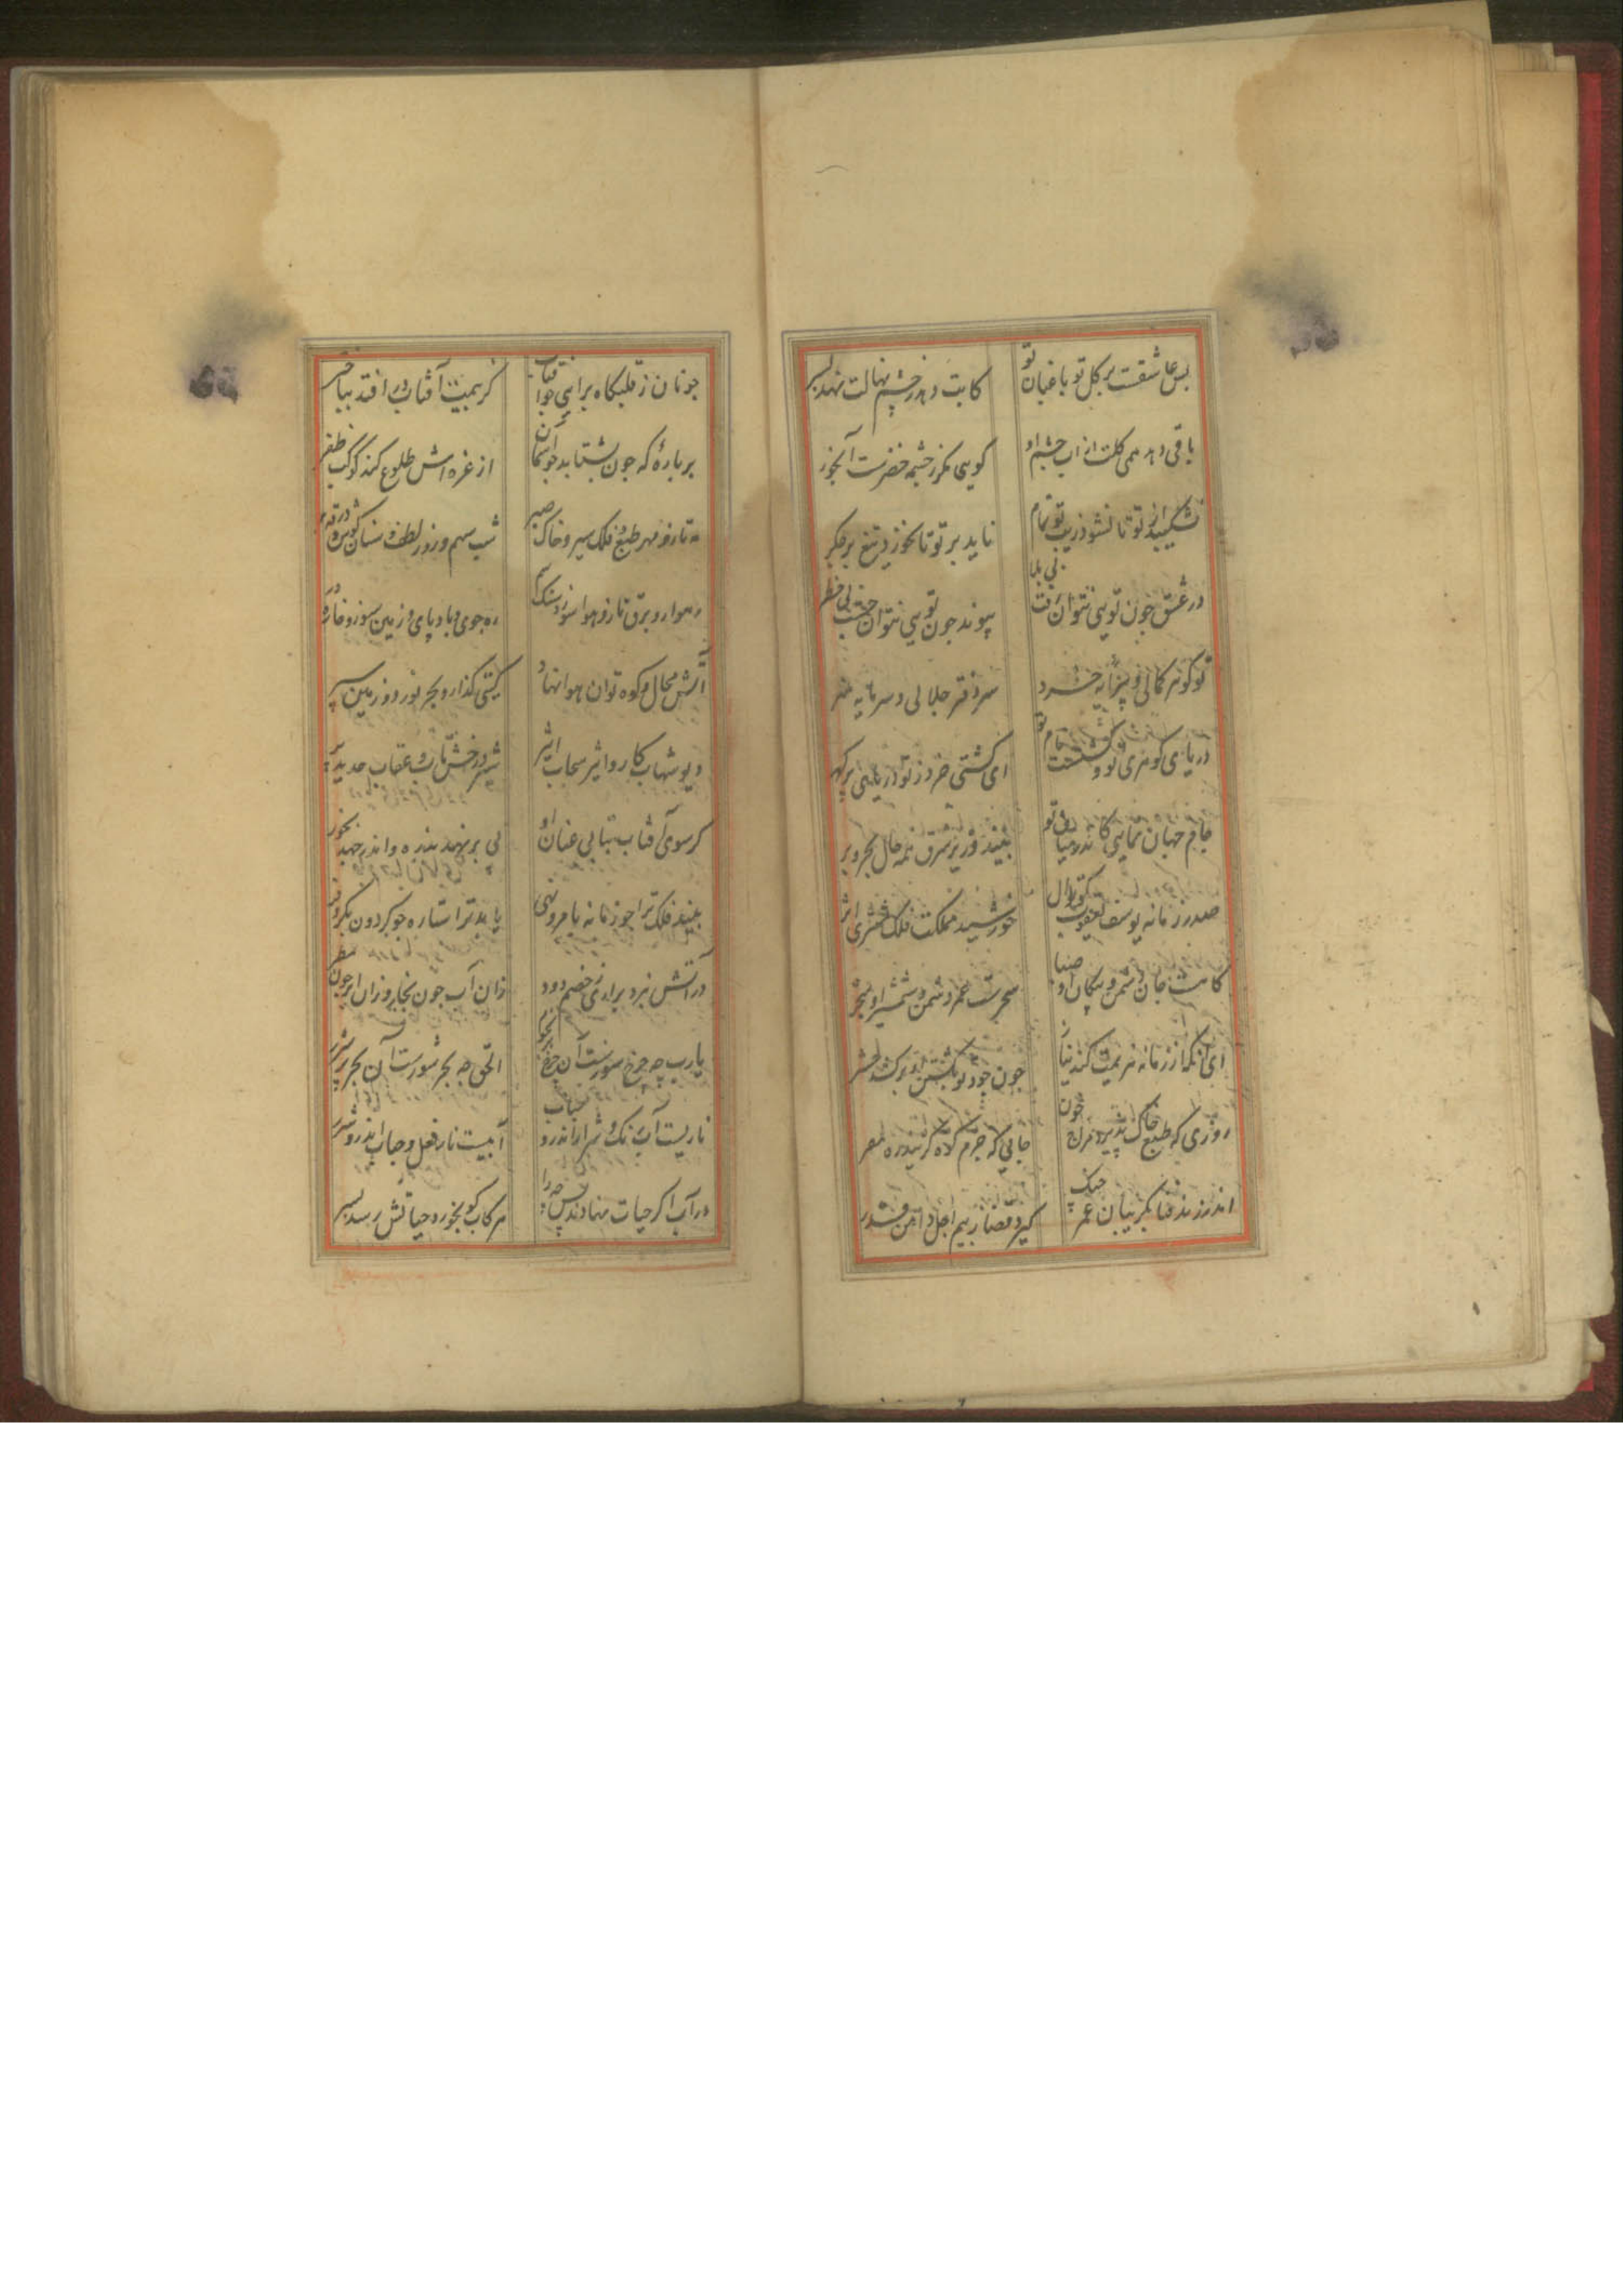 بس عاشقست بر کل تو باغبان تو کابت دهد ز چشم نهالت نهد بسر
باقی دهد همی کلت از اب چشم او کویی مکر ز چشمه خضرست آبخور
نشکیبد از تو تا نشود زیب تو تمام ناید بر تو تا نخورد تیغ بر جکر
در عشق جون تویی نتوان رفت بی بلا پیوند جون تویی نتوان جست بی خطر
تو کوهر کمالی و پیرایه خرد سر دفتر جلالی و سرمایه هنر
دریای کوهری تو و کشتیت نام تو ای کشتی خرد ز تو دریای پر کهر
جام جهان نمایی کاندر میان تو بیند وزیر شرق همه حال بحر و بر
صدر زمانه یوسف یعقوب خورشید مملکت فلک مشتری اثر
جان دشمن و پیکان او صبا عمر دشمن و شمشیر او سحر
ای آنکه از زمانه نهیبت کند نیاز جون جود تو بکشتن او برکشد حشر
روزی که طبع خاک پذیرد مزاج خون جایی که جرم کلاه کزیند ره مفر
اندر فنا بکریبان عمر جنک کیرد قضا ز بیم اجل دامن قدر
جونان ز قلبکاه برایی جو آفتاب کز هیبت آفتاب در افتد بباختر
بر باره که جون بشتابد جو آسمان از غره اش طلوع کند کوکب ظفر
مه تاز و مهر طبع و فلک سیر و خاک صبر شب سهم و روز لطف و سنان کوش و
رهوار و برق تاز و هوا سوز و سنک سم ره جوی و باد پای و زمین سوز و خاره در
آتش مجال و کوه توان و هوا نهاد کیتی کذار و بحر نورد و زمین سپر
دیو شهاب کار و اثیر سحاب اثیر شیر درخش تاب و عقاب حدید پر
کر سوی آفتاب بتابی عنان او پی بر نهد بذره و اندر جهد بخور
بیند فلک ترا جو زمانه بامر و نهی یابد ترا ستاره جو کردون بکر و فر
در آتش نبرد براری ز خصم دود زان آب جون بخار وزان ابر جون مطر
یارب چه جرخ سورتست آن جرخ پر نجوم الحق چه بحر شورست آن بحر پر شرر
ناریست آب رنک و شرار اندرو حباب آبیست نار فعل و حباب اندرو شرر
در آب اکر حیات نهادند پس چرا هر کاب او بخورد حیاتش رسد بسر